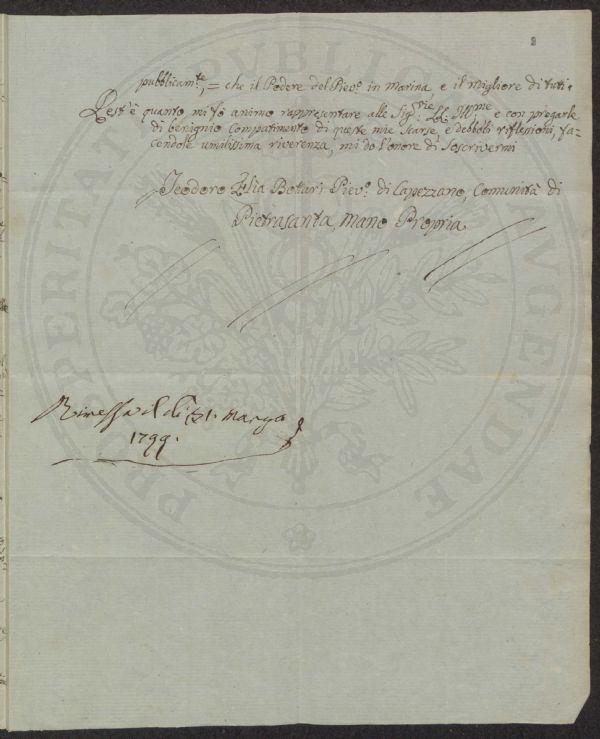 pubblicam.te, = che il Podere del Piev.o in Marina, e il Migliore di tuti.
Quest'è quanto mi fò animo rappresentare alle Sig.rie LL Ill.me e con pregarle
di benignio Compatimento di queste mie Scarse, e debboli riflesioni, fa=
cendole umilissima riverenza, mi do l'onore di Soscrivermi
Teodoro Elia Botari Piev.o di Capezzano, Comunità di
Pietrasanta, Mano Propria
Rimessa il di 31. Marzo
1799.
PRO PERITATI PUBLICAE AUGENDAE